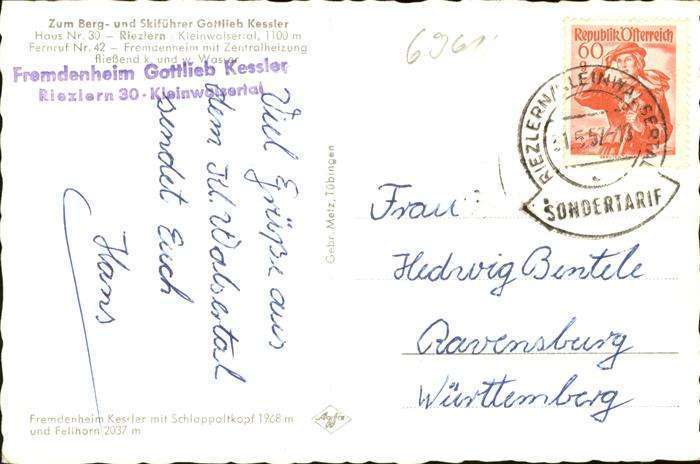 Zum Berg- und Skiführer Gottlieb Kessler
Haus Nr. 30 - Riezlern - Kleinwalsertal, 1100 m
Fernruf Nr. 42 - Fremdenheim mit Zentralheizung
fließend k. und w. Wasser
Fremdenheim Gottlieb Kessler
Riezlern 30 · Kleinwalsertal
Viel Grüße aus
dem Kl. Walsertal
sendet Euch
Hans
Fremdenheim Kessler mit Schlappoltkopf 1968 m
und Fellhorn 2037 m
Gebr. Metz, Tübingen
Agfa
6961
Republik Österreich
60
g
RIEZLERN/KLEINWALSERTAL
SONDERTARIF
Frau
Hedwig Bentele
Ravensburg
Württemberg